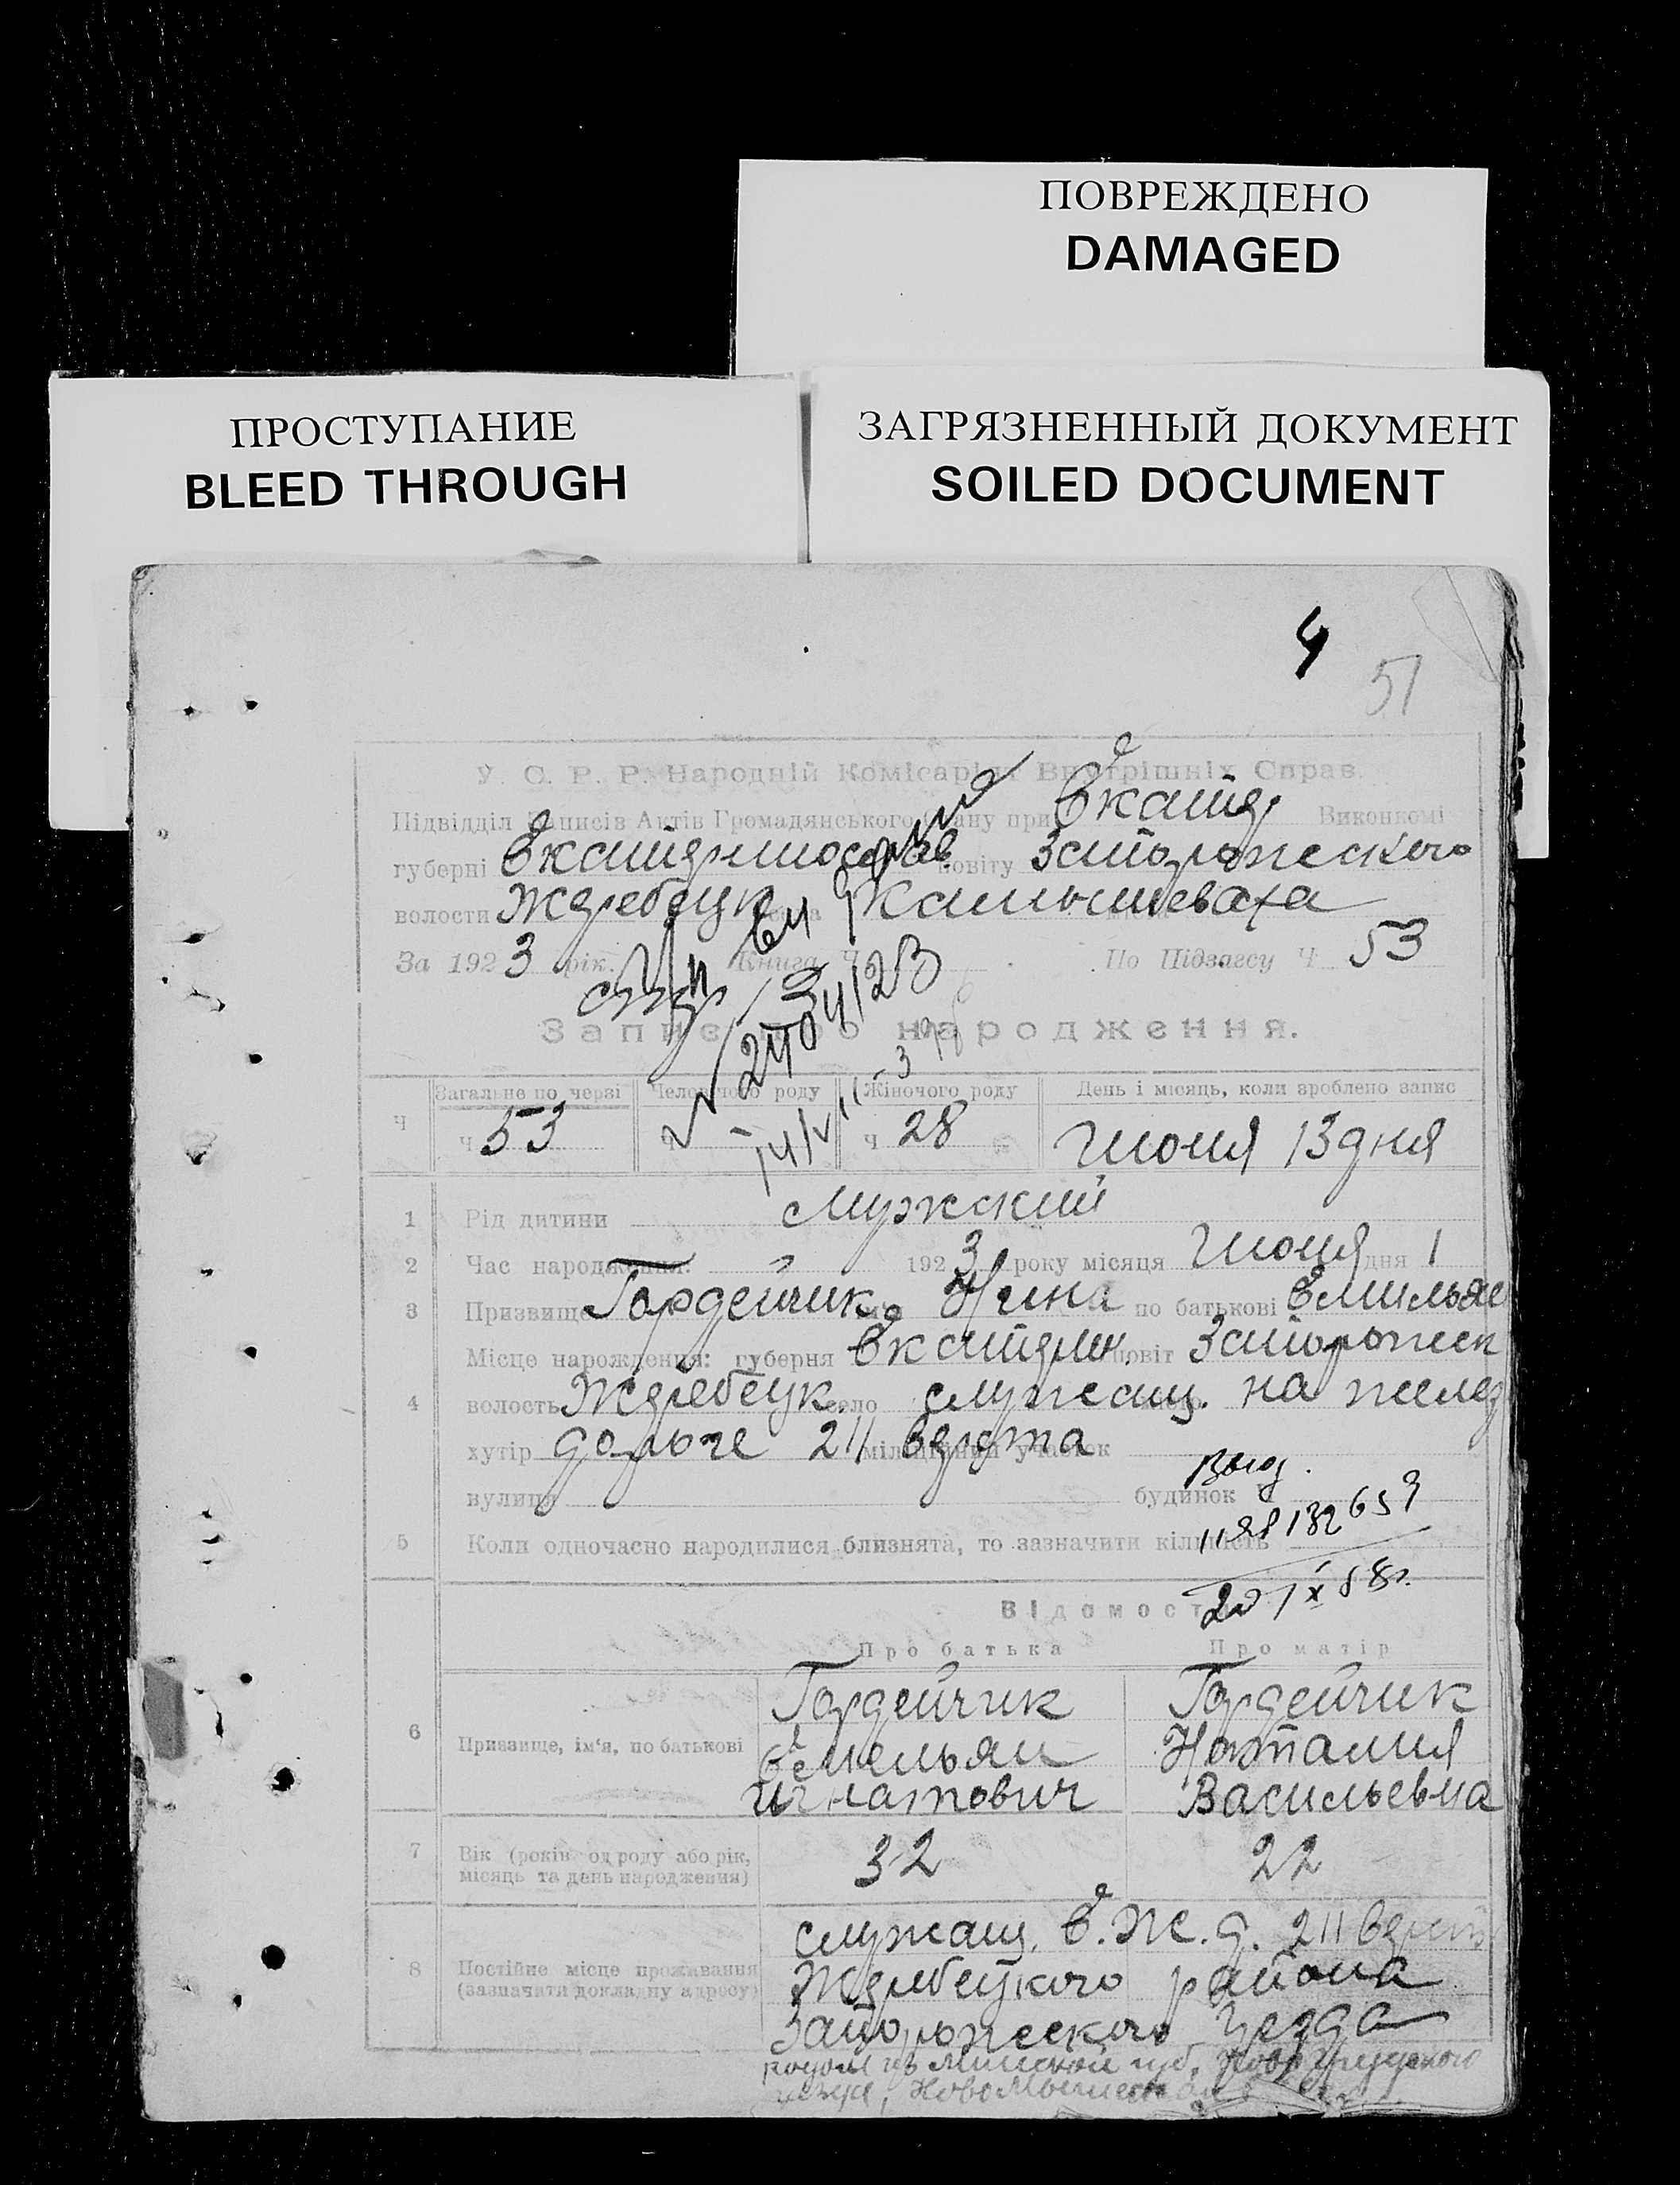 ПОВРЕЖДЕНО
DAMAGED
ПРОСТУПАНИЕ
BLEED THROUGH
ЗАГРЯЗНЕННЫЙ ДОКУМЕНТ
SOILED DOCUMENT
4
51
У. С. Р. Р. Народній Комісаріят Внутрішніх Справ.
Підвідділ Записів Актів Громадянського Стану при Викономі
губерні Екатеринослав повіту Запорожского
волости Жеребецк Камышеваха
За 1923 рік. Книга Ч По Підзагсу Ч 53
Запис про народження.
Загальне по черзі Человічого роду Жіночого роду День і місяць, коли зроблено запис
Ч ч 53 ч - ч 28 Июня 13 дня
1 Рід дитини Мужский
2 Час народження: 1923 року місяця Июня дня 1
3 Призвище Гордейчик Нина по батькові Емилья
Місце нарождення: губерня Екатерин. повіт Запорожск
4 волость Жеребецк. село служащ. на желез
хутір дороге 211 верста міліційний участок
вулиця будинок Ч
5 Коли одночасно народилися близнята, то зазначити кількість
Відомости
Про батька Про матір
6 Призвище, ім'я, по батькові
Гордейчик Гордейчик
Емельян Наталия
Игнатович Васильевна
7 Вік (років од роду або рік, місяць та день народження) 32 22
8 Постійне місце проживання (зазначити докладну адресу)
служащ. Е.Ж.д. 211 верст
Жеребецкого района
Запорожского Уезда
родом из Минской губ,